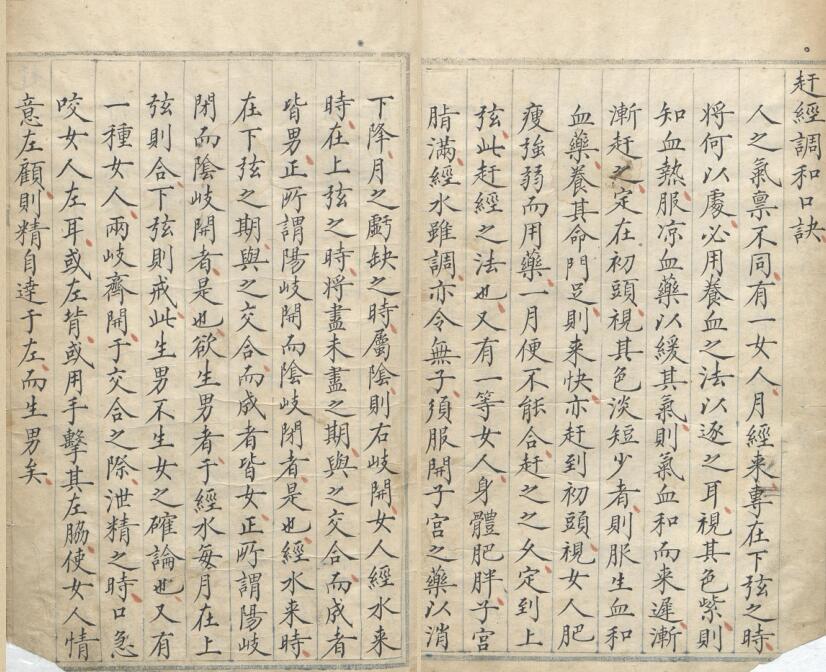 赶經調和口訣
人之氣禀不同有一女人月經来專在下弦之時
將何以處必用養血之法以逐之耳視其色紫則
知血熱服凉血藥以緩其氣則氣血和而来遲漸
漸赶之定在初頭視其色淡短少者則服生血和
血藥養其命門足則来快亦赶到初頭視女人肥
瘦強弱而用藥一月便不能合赶之之久定到上
弦此赶經之法也又有一等女人身體肥胖子宮
脂滿經水雖調亦令無子須服開子宮之藥以消
下降月之虧缺之時屬陰則右岐開女人經水来
時在上弦之時將盡未盡之期與之交合而成者
皆男正所謂陽岐開而陰岐閉者是也經水来時
在下弦之期與之交合而成者皆女正所謂陽岐
閉而陰岐開者是也欲生男者于經水每月在上
弦則合下弦則戒此生男不生女之確論也又有
一種女人兩岐齊開于交合之際泄精之時口急
咬女人左耳或左肯或用手擊其左脇使女人情
意左顧則精自達于左而生男矣